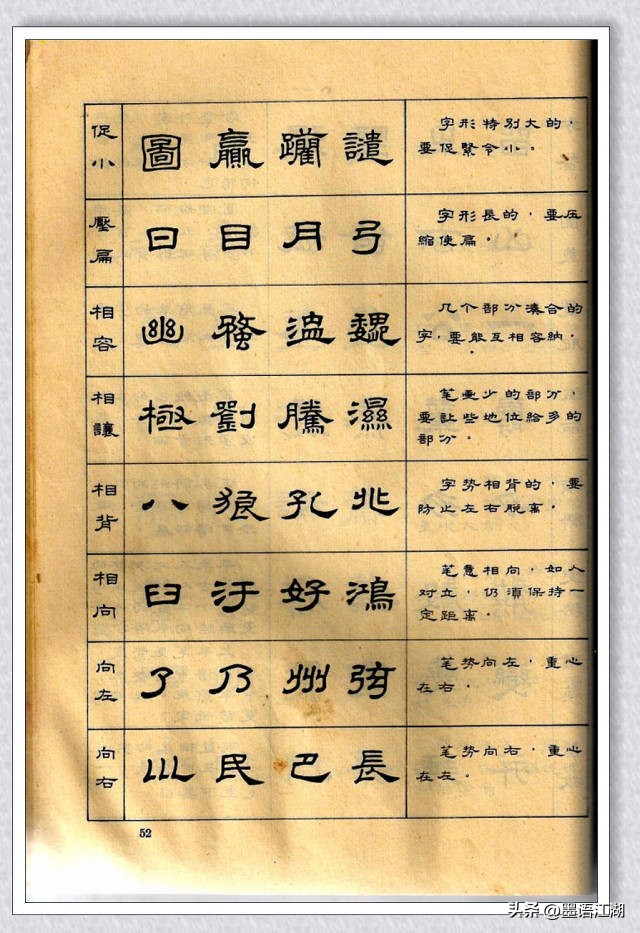 促小
圖 贏 譴
字形特别大的，
要促緊令小。
壓扁
曰 目 月 弓
字形長的，要压
缩使扁。
相容
幽 温 魏
几个部分凑合的
字，要能互相容纳。
相讓
極 劉 騰 濕
笔画少的部分，
要让些地位給多的
部分。
相背
八 狼 孔
字势相背的，要
防止左右脱离。
相向
臼 汙 好 鴻
笔意相向，如人
对立，仍须保持一
定距离。
向左
了 乃 州 弦
笔势向左，重心
在右。
向右
民 巴 長
笔势向右，重心
在左。
52
头条 @墨语江湖